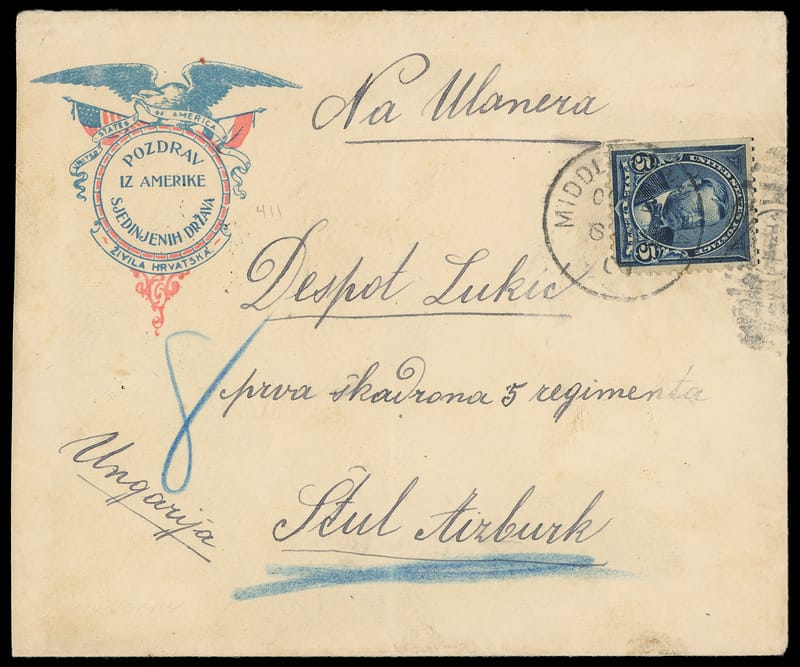 UNITED STATES OF AMERICA
POZDRAV
IZ AMERIKE
SJEDINJENIH DRŽAVA
ŽIVILA HRVATSKA
411
Na Ulanera
MIDDL
5 5
Despot Lukic
8
prva škadrona 5 regimenta
Ungarija
Štul Aizburk